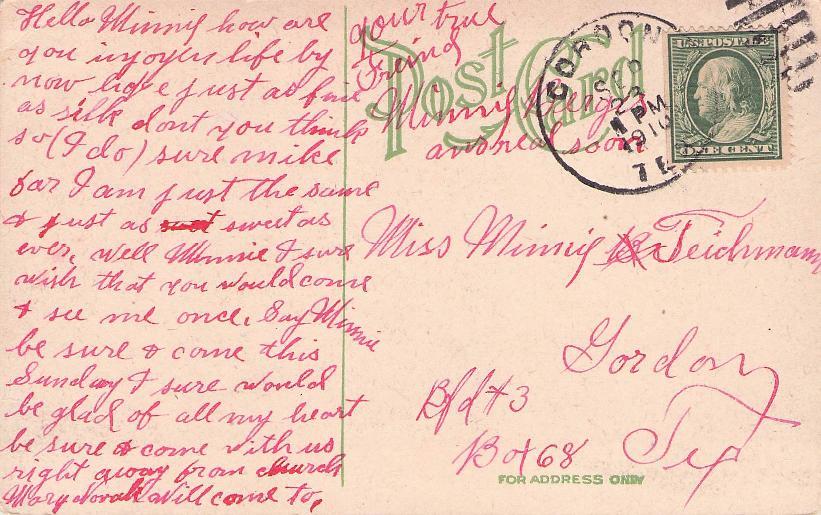 Hello Minnie how are
you injoyen life by
now have just as fine
as silk dont you think
so (I do) sure mike
far I am just the same
& just as sweet as
ever, well Minnie I sure
wish that you would come
& see me once. Say Minnie
be sure & come this
Sunday I sure would
be glad of all my heart
be sure & come with us
right away from church
Mary Novak will come to,
your true
Freind
Minnie
anwreal soon
Post Card
GORDON
SEP
23
1 PM
1910
TEX
U.S. POSTAGE
ONE CENT
Miss Minnie Teichmann
Gordon
Rfd #3
Box 68
Tex
FOR ADDRESS ONLY